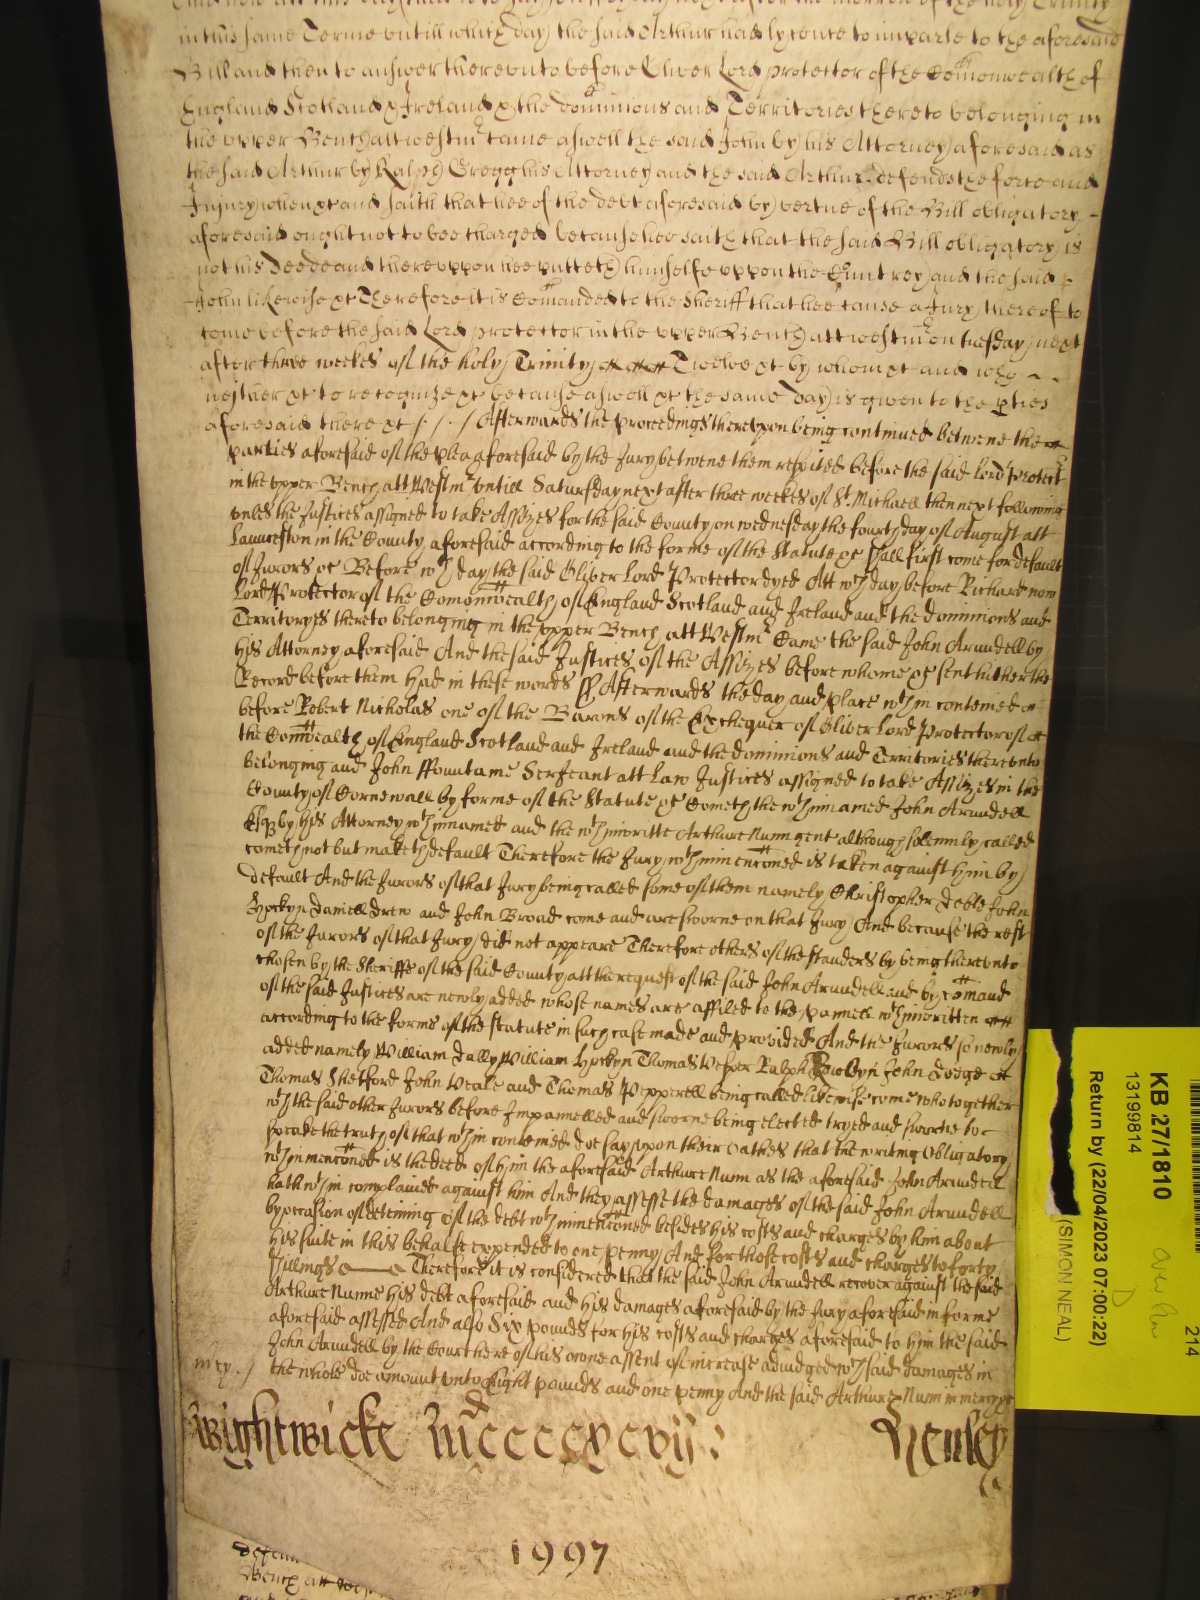 in this same Terme untill which day the said Arthur had lycence to imparle to the aforesaid
Bill and then to answer thereunto before Oliver Lord protector of the Comonwealth of
England Scotland & Ireland & the dominions and Territories thereto belonging in
the upper Bench att westmr came aswell the said John by his Attorney aforesaid as
the said Arthur by Ralph Gregg his Attorney and the said Arthur defends the force and
Injury when &c and saith that hee of the debt aforesaid by vertue of the Bill obligatory
aforesaid ought not to bee charged because hee saith that the said Bill obligatory is
not his Deede and thereuppon hee putteth himselfe uppon the Cuntrey and the said
John likewise &c Therefore it is Comanded to the Sheriff that hee cause a Jury thereof to
come before the said Lord protector in the upper Bench att westmr on tuesday next
after three weekes of the holy Trinity Twelve &c by whom &c and who
neither &c to recognize &c because aswell &c the same day is given to the pties
aforesaid there &c /./././ Afterwards the proceedings thereupon being continued betwene the
parties aforesaid of the plea aforesaid by the Jury betwene them respited before the said Lord Protectr
in the upper Bench att Westmr untill Satursday next after three weekes of St. Michaell then next following
unles the Justices assigned to take Assizes for the said County on wednesday the fourth day of August att
Launceston in the County aforesaid according to the forme of the Statute &c shall first come for default
of Jurors &c Before wch day the said Oliver Lord Protector dyed Att wch day before Richard now
Lord Protector of the Comonwealth of England Scotland and Ireland and the dominions and
Territoryes thereto belonging in the upper Bench att Westmr Came the said John Arundell by
his Attorney aforesaid And the said Justices of the Assizes before whome &c sent hither the
Record before them had in these words ss Afterwards the day and place wthin conteined
before Robert Nicholas one of the Barons of the Exchequer of Oliver Lord Protector of
the Comwealth of England Scotland and Ireland and the dominions and Territories thereunto
belonging and John ffountaine Serjeant att Law Justices assigned to take Assizes in the
County of Cornewall by forme of the Statute &c Cometh the wthinnamed John Arundell
Esqr by his Attorney wthinnamed and the wthinwritte Arthure Nunn gent although solemnly called
cometh not but maketh default Therefore the Jury wthin mencioned is taken against him by
default And the Jurors of that Jury being called some of them namely Christopher Deble John
Hockyn Daniell Drew and John Broad come and are sworne on that Jury And because the rest
of the Jurors of that Jury did not appeare Therefore others of the standers by being thereunto
chosen by the Sheriffe of the said County att the request of the said John Arundell and by comaund
of the said Justices are newly added whose names are affiled to the pannell wthinwritten
according to the forme of the statute in such case made and provided And the Jurors so newly
added namely William Dally William Hockyn Thomas Vesper Ralph Rawlyn John Dodge
Thomas Shetford John Veale and Thomas Pepperell being called likewise come who together
wth the said other Jurors before Impannelled and sworne being elected tryed and sworne to
speake the truth of that wthin conteined doe say upon their Oathes that the writing Obligatory
wthin mencioned is the deed of him the aforesaid Arthure Nunn as the aforesaid John Arundell
hath wthin complained against him And they assesse the damages of the said John Arundell
by occasion of deteining of the debt wthin mencioned besides his costs and charges by him about
his suite in this behalfe expended to one penny And for those costs and charges to forty
shillings Therefore it is considered that the said John Arundell recover against the said
Arthure Nunne his debt aforesaid and his damages aforesaid by the Jury aforesaid in forme
aforesaid assessed And also Six pounds for his costs and charges aforesaid to him the said
John Arundell by the Court here of his owne assent of increase adiudged wch said damages in
mcy. / the whole doe amount unto Eight pounds and one penny And the said Arthure Nunn in mercy &c
Wightwicke Mdccccxcvij: Henley
1997
KB 27/1810
13199814
Return by (22/04/2023 07:00:22)
(SIMON NEAL)
2114
D